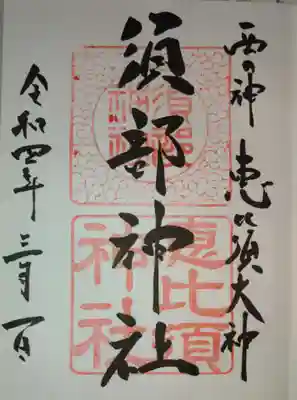 西の神 恵比須大神
須部神社
令和四年 三月一日
須部神社
恵比須神社